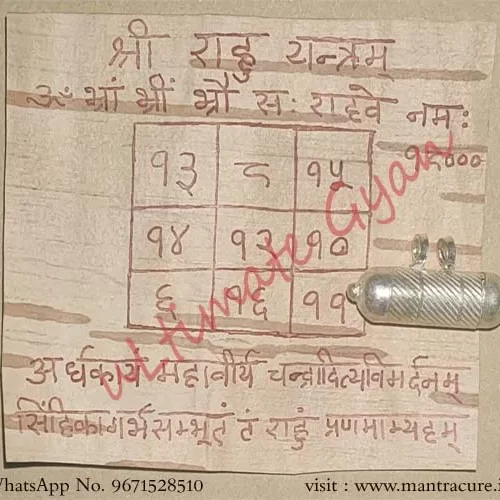 श्री राहु यन्त्रम्
ॐ भ्रां भ्रीं भ्रौं सः राहवे नमः
१८०००
१३ ८ १५
१४ १२ १०
६ १६ ११
अर्धकायं महावीर्य चन्द्रादित्यविमर्दनम्
सिंहिकागर्भसम्भूतं तं राहुं प्रणमाम्यहम्
Ultimate Gyan
WhatsApp No. 9671528510 visit : www.mantracure.i